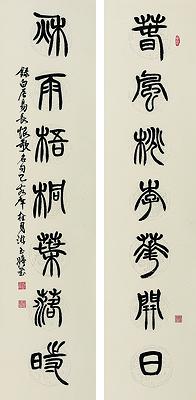 春風桃李華開日
秋雨梧桐葉落時
錄白居易長恨歌名句年桂月